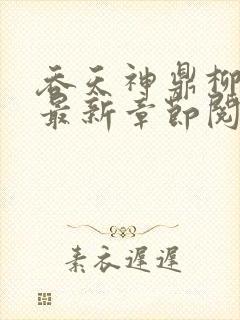 吞天神鼎柳
最新章節閱
素衣遲遲